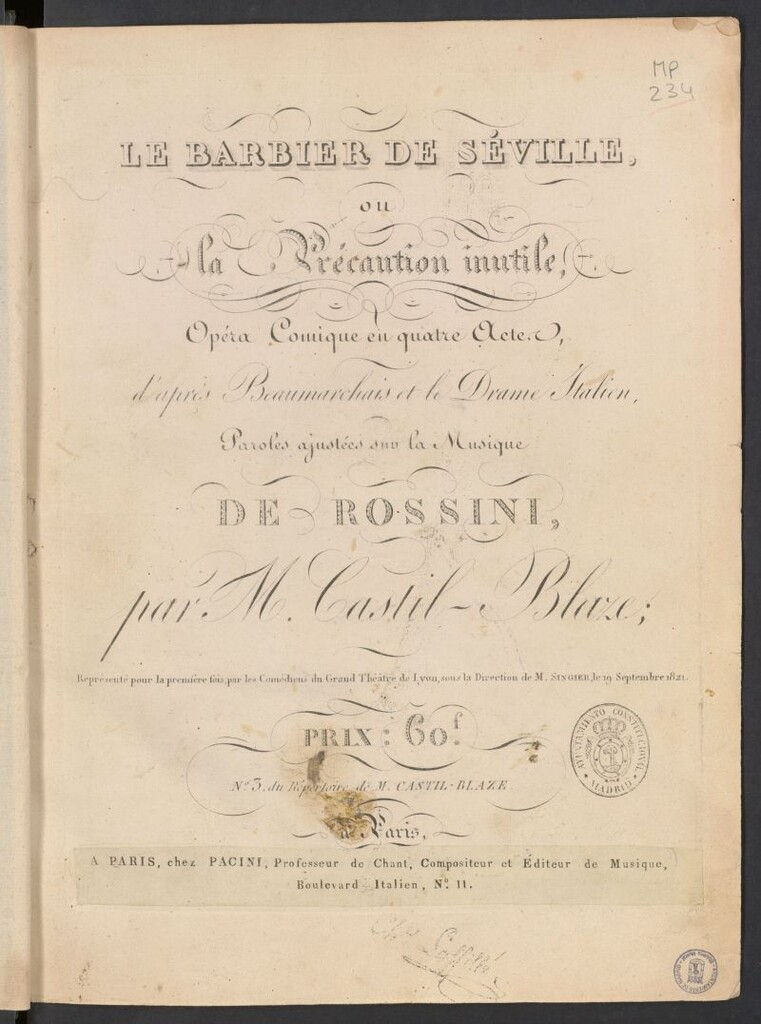 MP
234
LE BARBIER DE SÉVILLE,
ou
la Précaution inutile,
Opéra Comique en quatre Actes,
d'après Beaumarchais et le Drame Italien,
Paroles ajustées sur la Musique
DE ROSSINI,
par M. Castil-Blaze;
Représenté pour la première fois, par les Comédiens du Grand Théâtre de Lyon, sous la Direction de M. SINGIER, le 19 Septembre 1821.
PRIX: 60f.
AYUNTAMIENTO CONSTITUCIONAL
MADRID
No. 3. du Répertoire de M. CASTIL-BLAZE
à Paris,
A PARIS, chez PACINI, Professeur de Chant, Compositeur et Éditeur de Musique,
Boulevard Italien, No. 11.